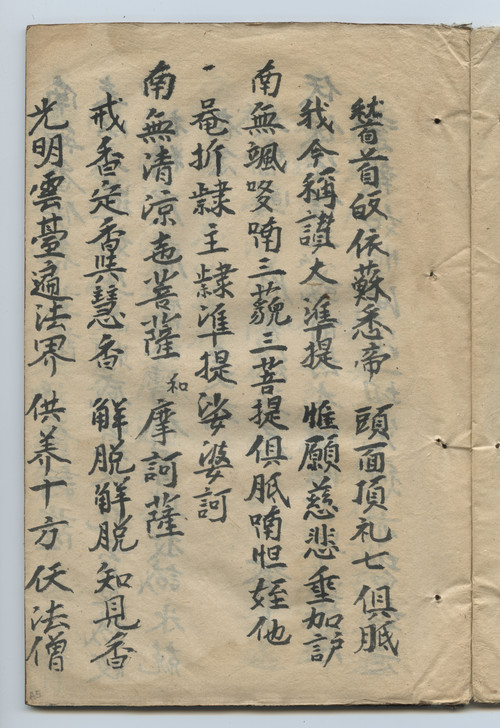 稽首皈依蘇悉帝 頭面頂礼七俱胝
我今稱讃大準提 惟願慈悲垂加护
南無颯哆喃三藐三菩提俱胝喃怛姪他
菴折隸主隸準提娑婆訶
南無清涼地菩薩 和 摩訶薩
戒香定香與慧香 解脱解脱知見香
光明雲臺遍法界 供养十方仸法僧